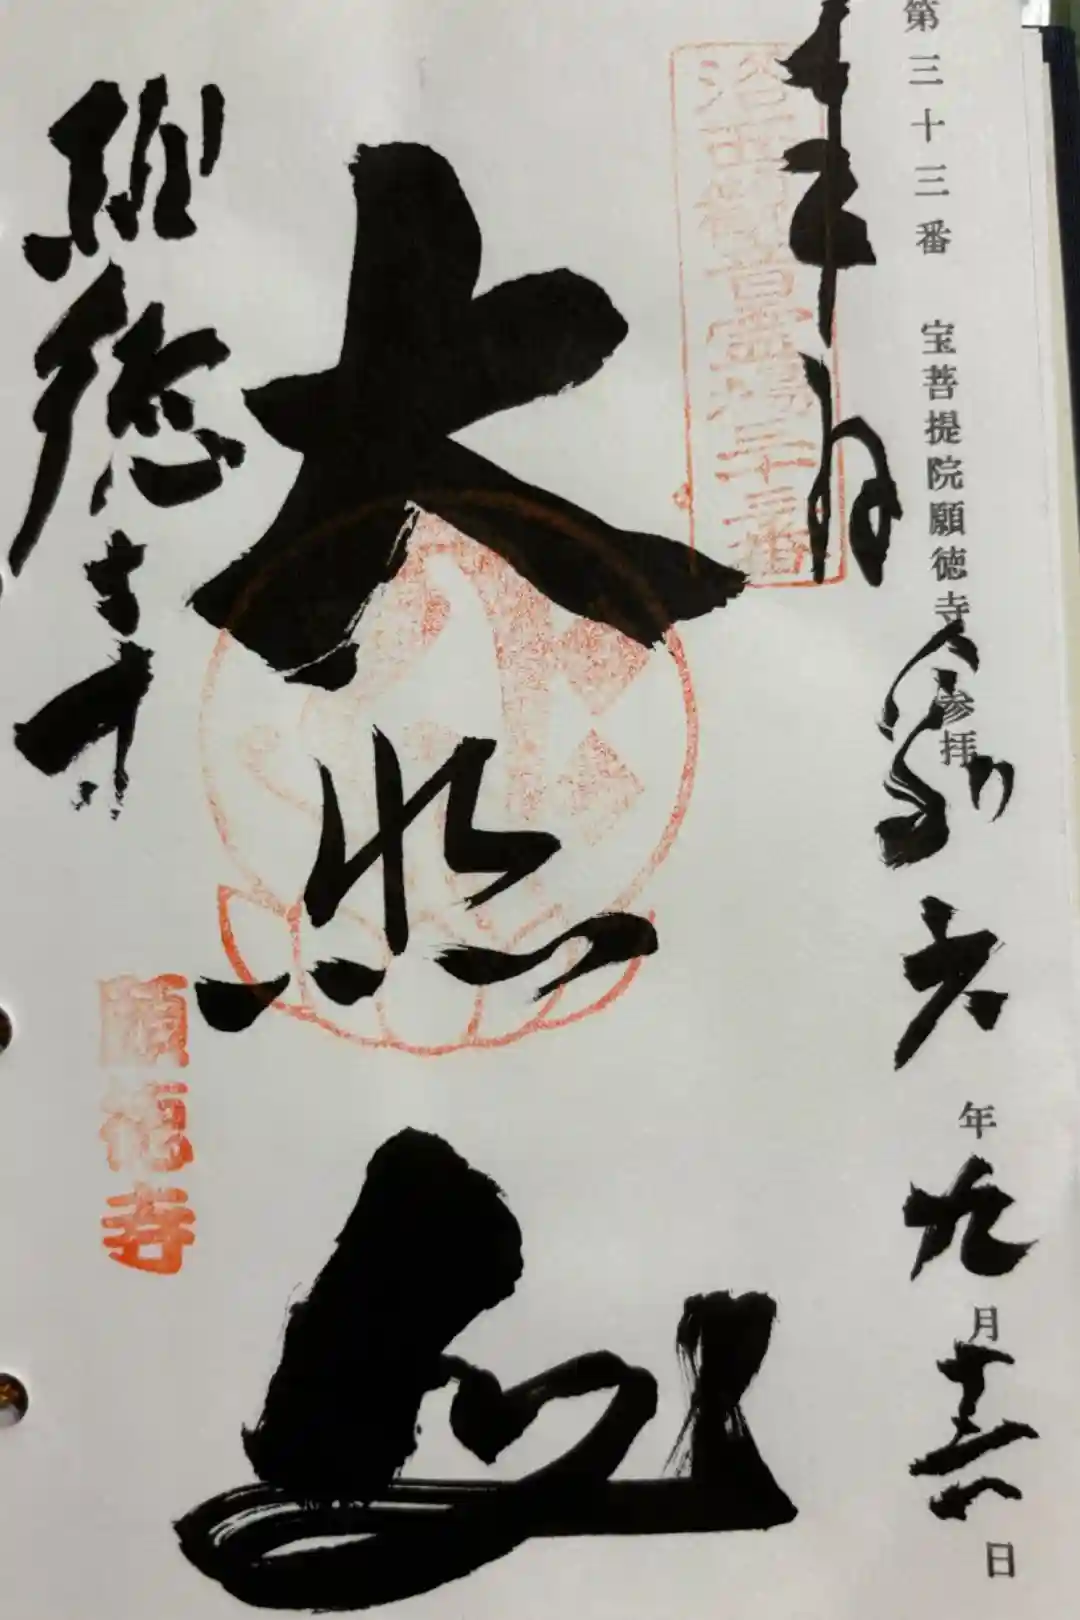 第三十三番 宝菩提院願徳寺 参拝
令和六年九月十三日
奉拝
洛西観音霊場三十三番
大悲山
願徳寺
願徳寺